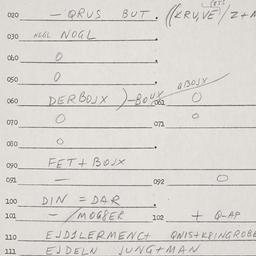 020 — QRUS BUT . ((KRU,VE)/2+
030 NOGL NOGL .
040 O
050 O
060 DERBOJX )-BOUX 061 O
070 O 071 O
080 O
090 FET+BOJX
091 — 092 O
100 DIN = DAR
101 — /MOGGER 102 + Q-AP
110 EJDSLERMENC+ QNIS+KRINGROBE
111 EJDELN JUNG+MAN